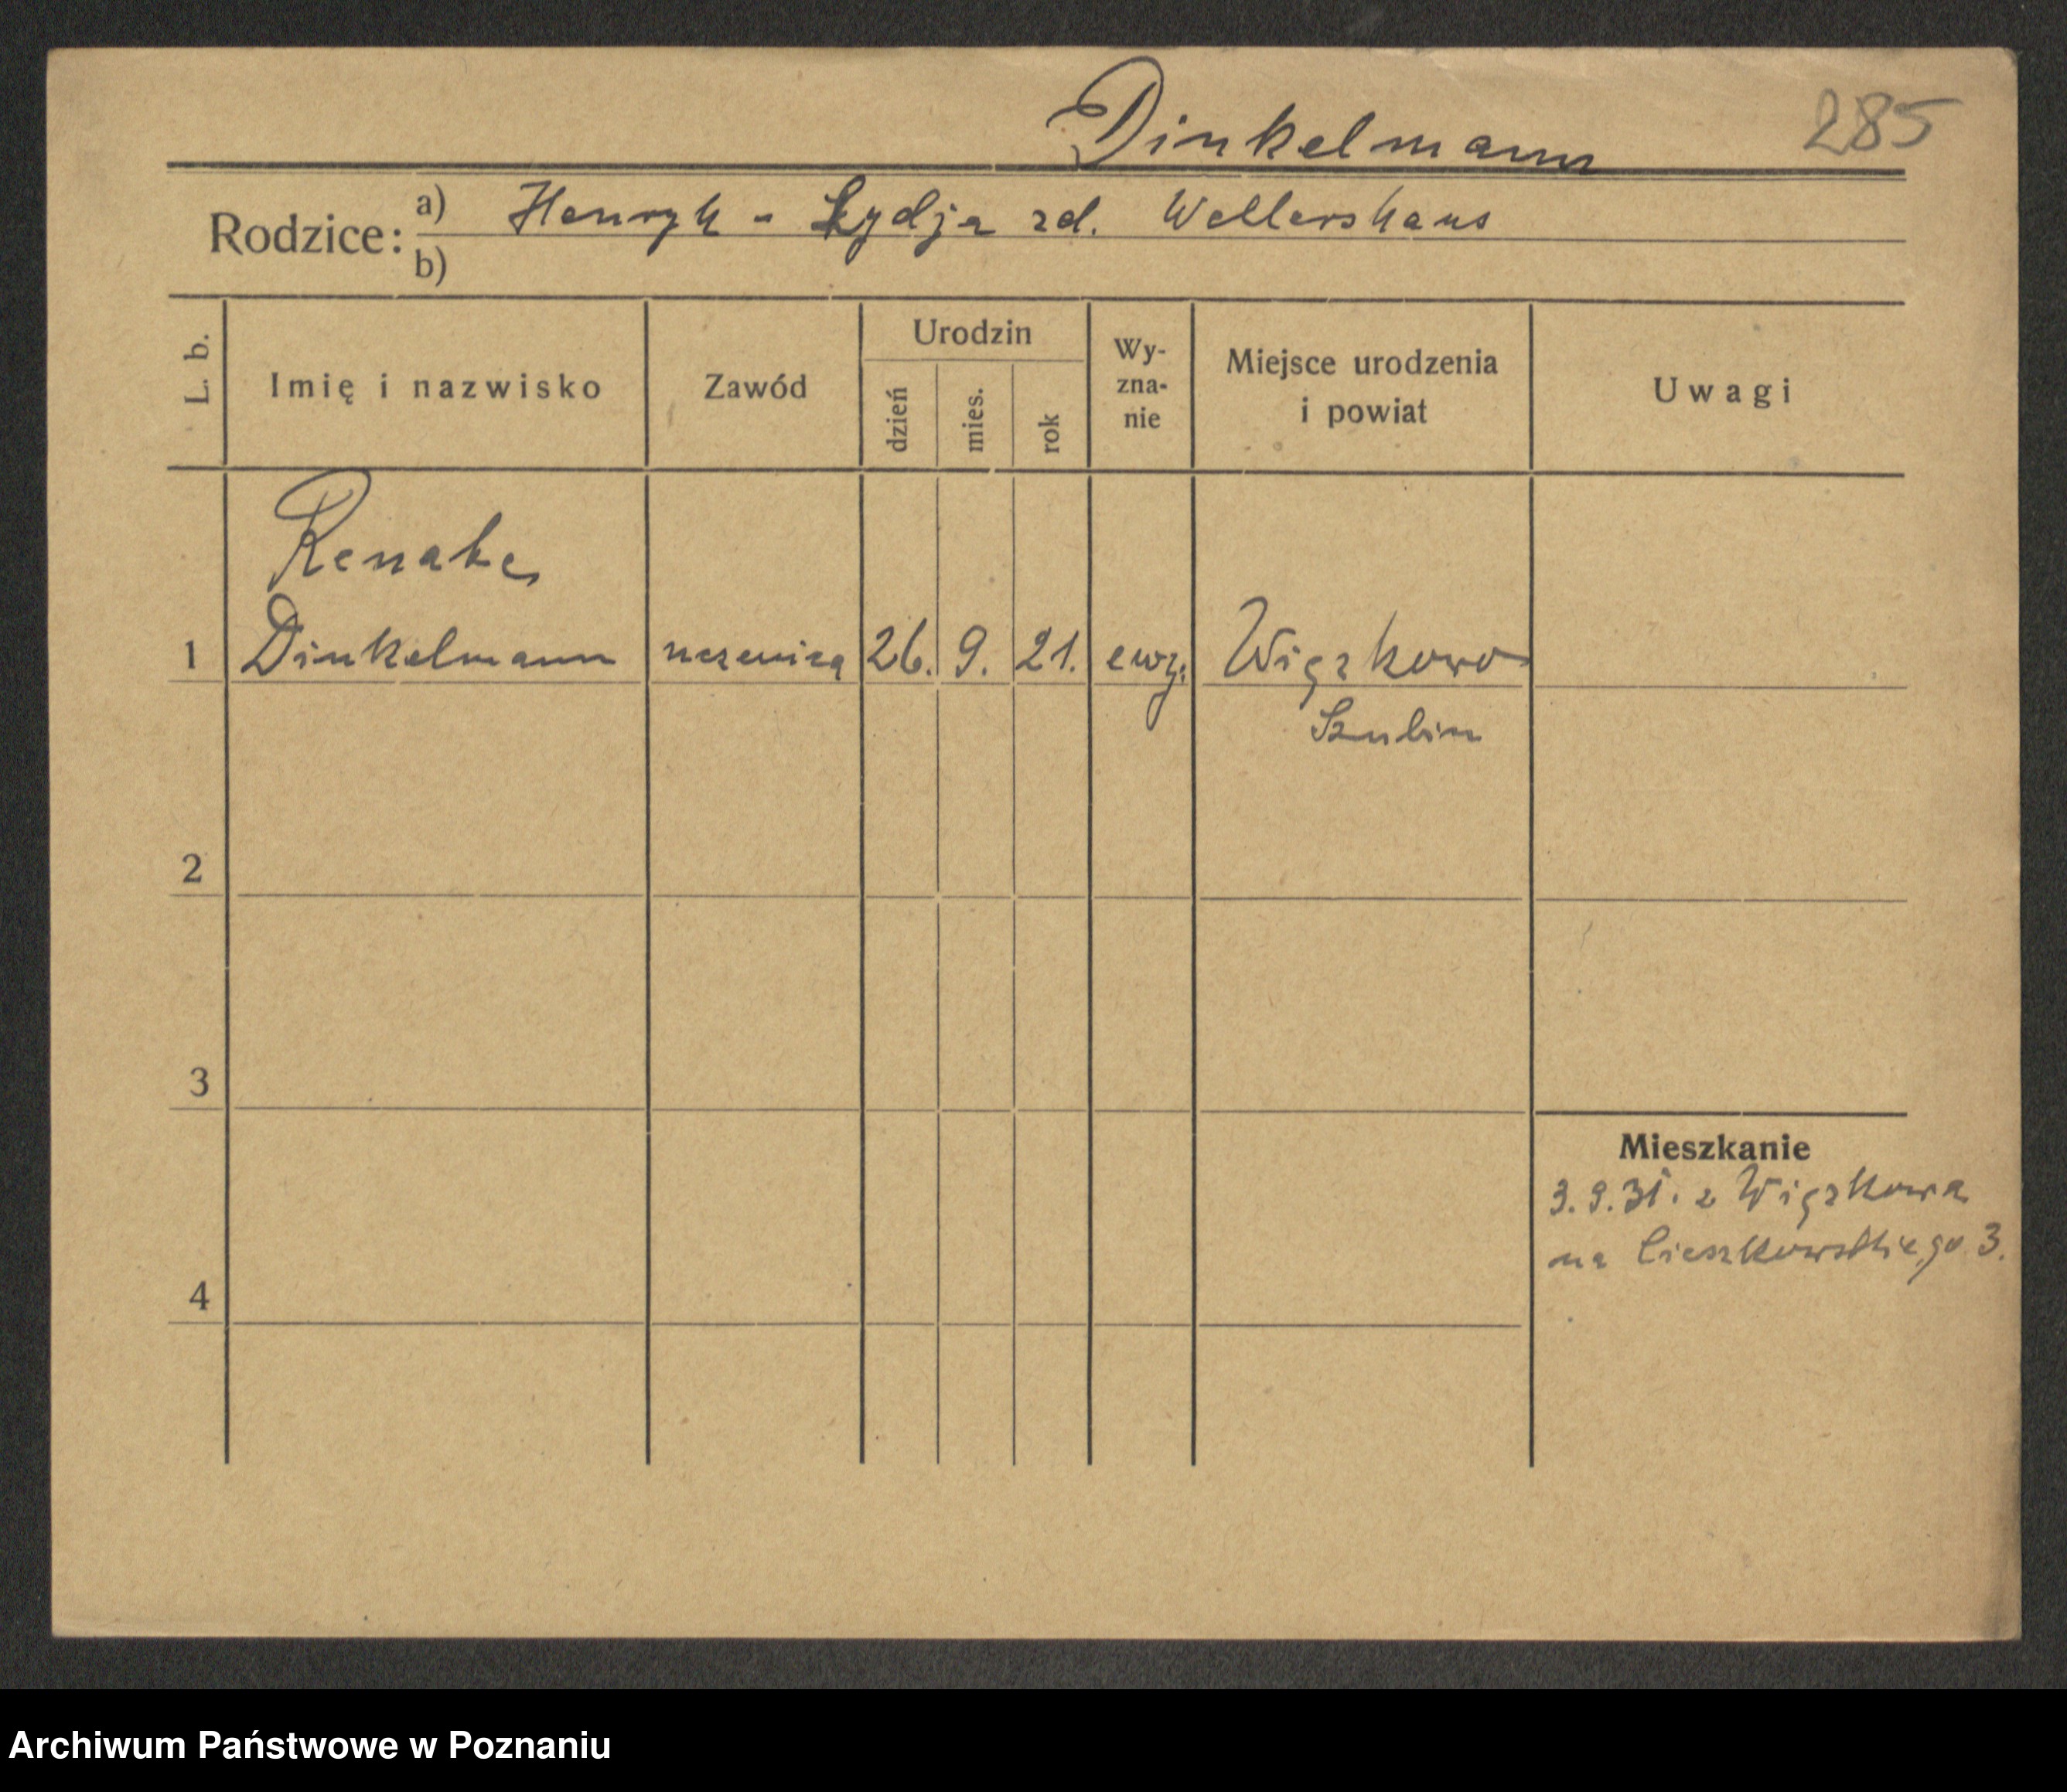 Dinkelmann
285
Rodzice:
a) Henryk - Lydja zd. Wellershaus
b)
L. b.
Imię i nazwisko
Zawód
Urodzin
dzień
mies.
rok
Wy-
zna-
nie
Miejsce urodzenia
i powiat
Uwagi
Renate
1 Dinkelmann uczenica 26. 9. 21. ewg. Więzkowo
Szubin
2
3
Mieszkanie
3.9.31. z Więzkowa
na Cieszkowskiego 3.
4
Archiwum Państwowe w Poznaniu